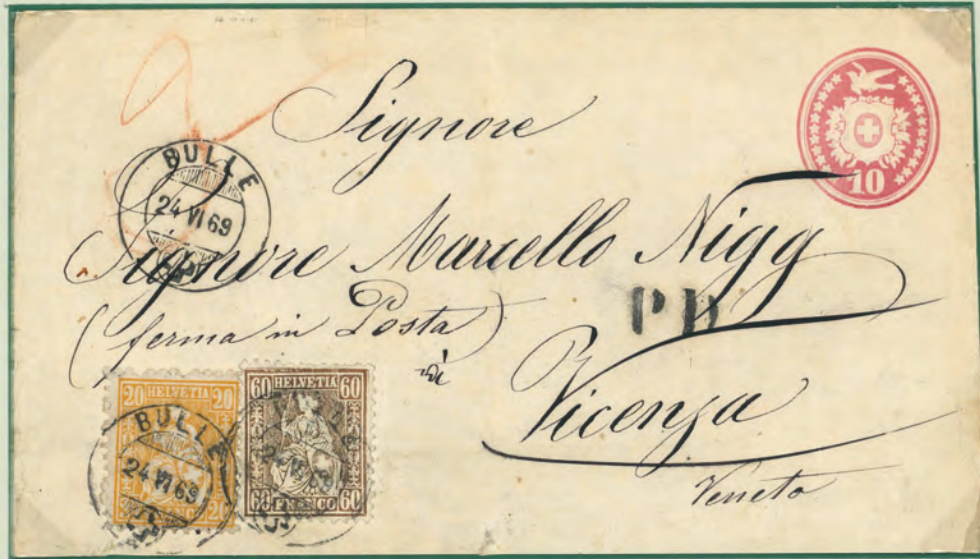 Signore
10
BULLE
24 VI 69
Signore Marcello Nigg
(ferma in Posta)
PD
à
Vicenza
Veneto
20 HELVETIA 20
FRANCO 20
BULLE
24 VI 69
60 HELVETIA 60
60 FRANCO 60